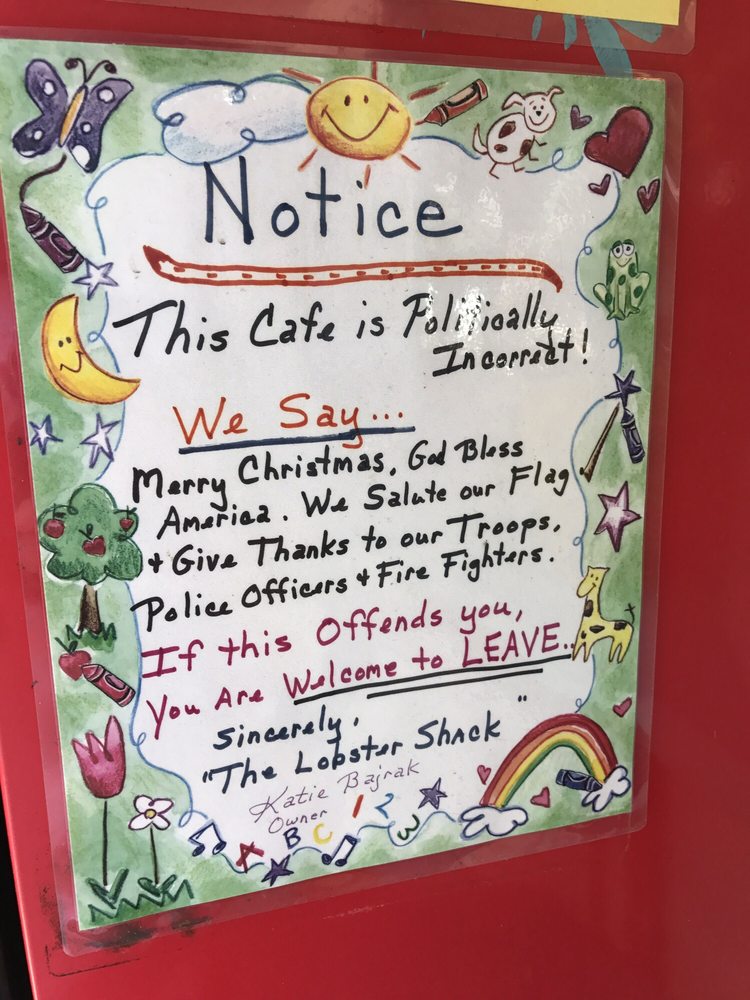 Notice
This Cafe is Politically
Incorrect!
We Say...
Merry Christmas, God Bless
America. We Salute our Flag
+ Give Thanks to our Troops,
Police Officers + Fire Fighters.
If this Offends you,
You Are Welcome to LEAVE..
Sincerely,
"The Lobster Shack"
Katie Bajrak
Owner
A B C 1 2 3